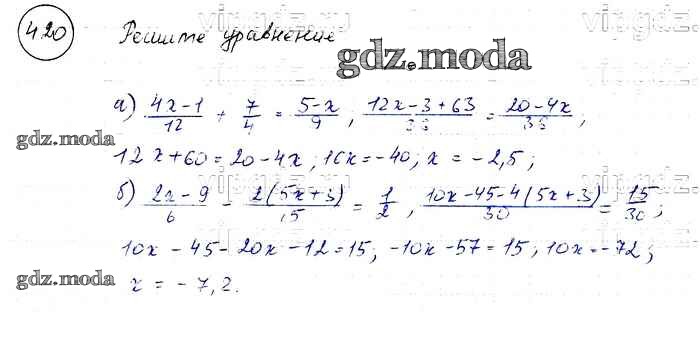 420 Решите уравнение
gdz.moda
а) (4x-1)/12 + 7/4 = (5-x)/9 ; (12x-3+63)/36 = (20-4x)/36 ;
gdz.moda
12x+60=20-4x; 16x=-40; x = -2,5;
б) (2x-9)/6 - 2(5x+3)/15 = 1/2 , (10x-45-4(5x+3))/30 = 15/30 ;
10x-45-20x-12=15; -10x-57=15; 10x=-72;
gdz.moda
x = -7,2.